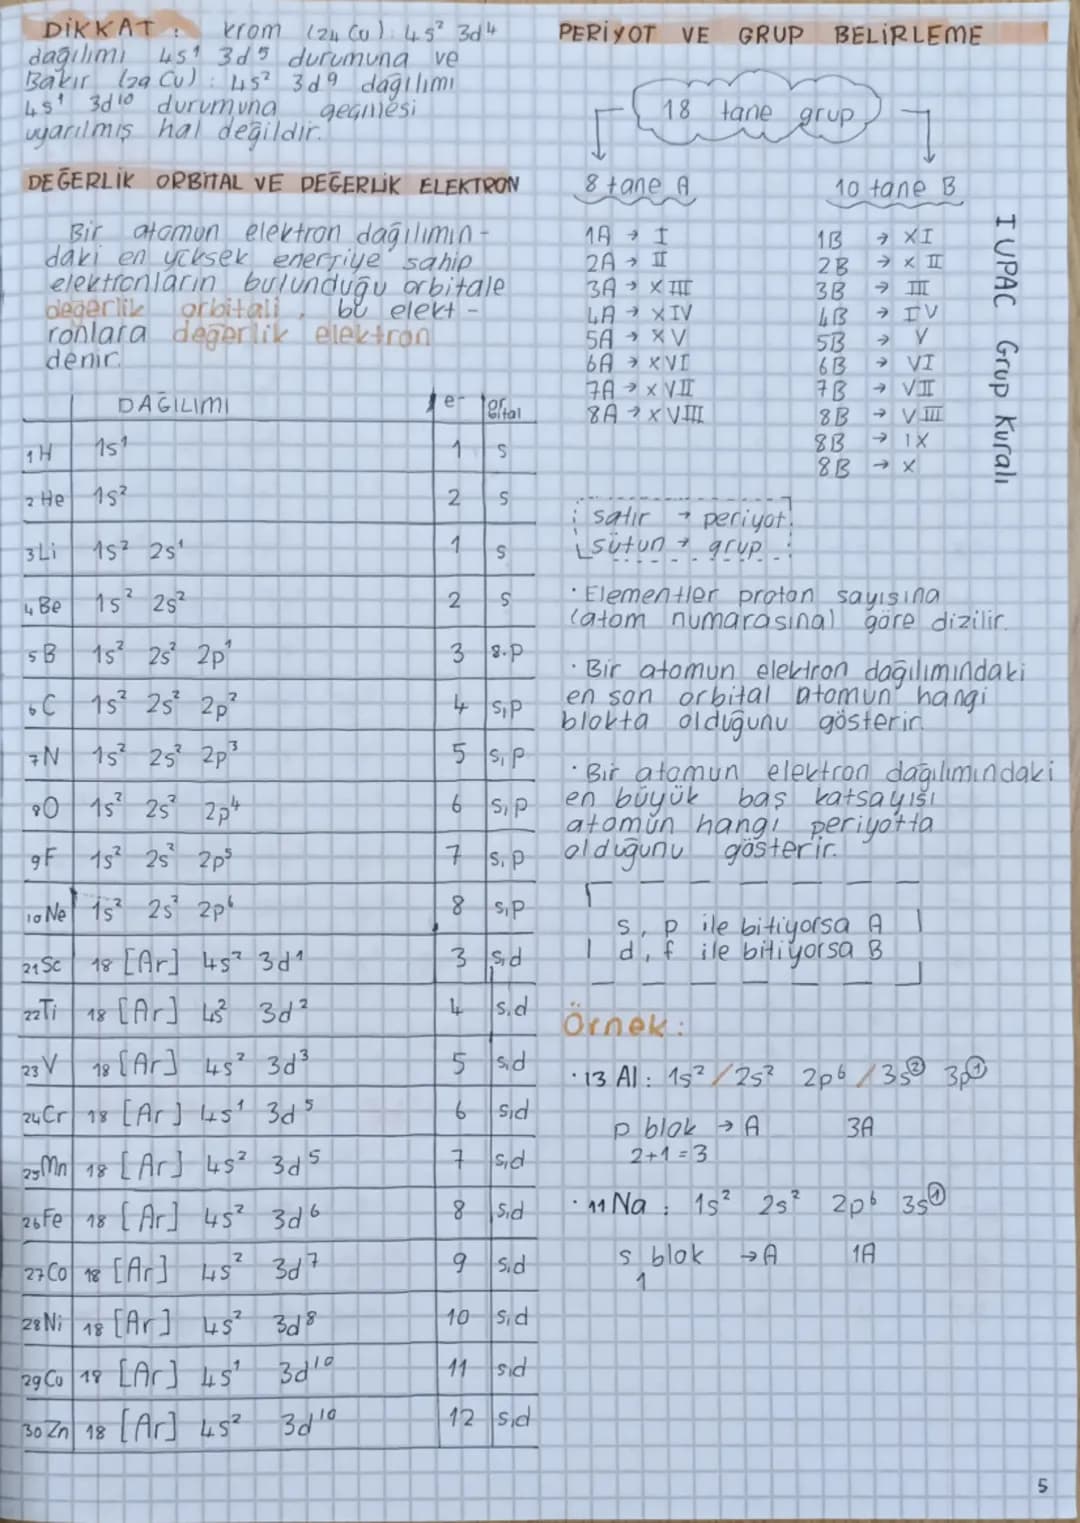 DİKKAT : krom (24 Cu) 4s² 3d4
dağılımı 4s¹ 3d5 durumuna ve
Bakır (29 Cu) : 4s² 3d9 dağılımı
4s¹ 3d10 durumuna geçmesi
uyarılmış hal değildir.
DEĞERLİK ORBİTAL VE DEĞERLİK ELEKTRON
Bir atomun elektron dağılımın-
daki en yüksek enerjiye sahip
elektronların bulunduğu orbitale
değerlik orbitali, bu elekt-
ronlara değerlik elektron
denir.
DAĞILIMI e- orbital
1H 1s¹ 1 s
2He 1s² 2 s
3Li 1s² 2s¹ 1 s
4Be 1s² 2s² 2 s
5B 1s² 2s² 2p¹ 3 s.p
6C 1s² 2s² 2p² 4 s,p
7N 1s² 2s² 2p³ 5 s,p
8O 1s² 2s² 2p⁴ 6 s,p
9F 1s² 2s² 2p⁵ 7 s,p
10Ne 1s² 2s² 2p⁶ 8 s,p
21Sc 18 [Ar] 4s² 3d¹ 3 s,d
22Ti 18 [Ar] 4s² 3d² 4 s,d
23V 18 [Ar] 4s² 3d³ 5 s,d
24Cr 18 [Ar] 4s¹ 3d⁵ 6 s,d
25Mn 18 [Ar] 4s² 3d⁵ 7 s,d
26Fe 18 [Ar] 4s² 3d⁶ 8 s,d
27Co 18 [Ar] 4s² 3d⁷ 9 s,d
28Ni 18 [Ar] 4s² 3d⁸ 10 s,d
29Cu 18 [Ar] 4s¹ 3d¹⁰ 11 s,d
30Zn 18 [Ar] 4s² 3d¹⁰ 12 s,d
PERİYOT VE GRUP BELİRLEME
18 tane grup
8 tane A
10 tane B
1A → I
2A → II
3A → XIII
4A → XIV
5A → XV
6A → XVI
7A → XVII
8A → XVIII
1B → XI
2B → XII
3B → III
4B → IV
5B → V
6B → VI
7B → VII
8B → VIII
8B → IX
8B → X
IUPAC Grup Kuralı
satır → periyot
sütun → grup
· Elementler proton sayısına
(atom numarasına) göre dizilir.
· Bir atomun elektron dağılımındaki
en son orbital atomun hangi
blokta olduğunu gösterir.
· Bir atomun elektron dağılımındaki
en büyük baş katsayısı
atomun hangi periyotta
olduğunu gösterir.
s, p ile bitiyorsa A
d, f ile bitiyorsa B
Örnek :
· 13 Al : 1s² / 2s² 2p⁶ / 3s② 3p①
p blok → A 3A
2+1=3
· 11 Na : 1s² 2s² 2p⁶ 3s①
s blok → A 1A
1
5